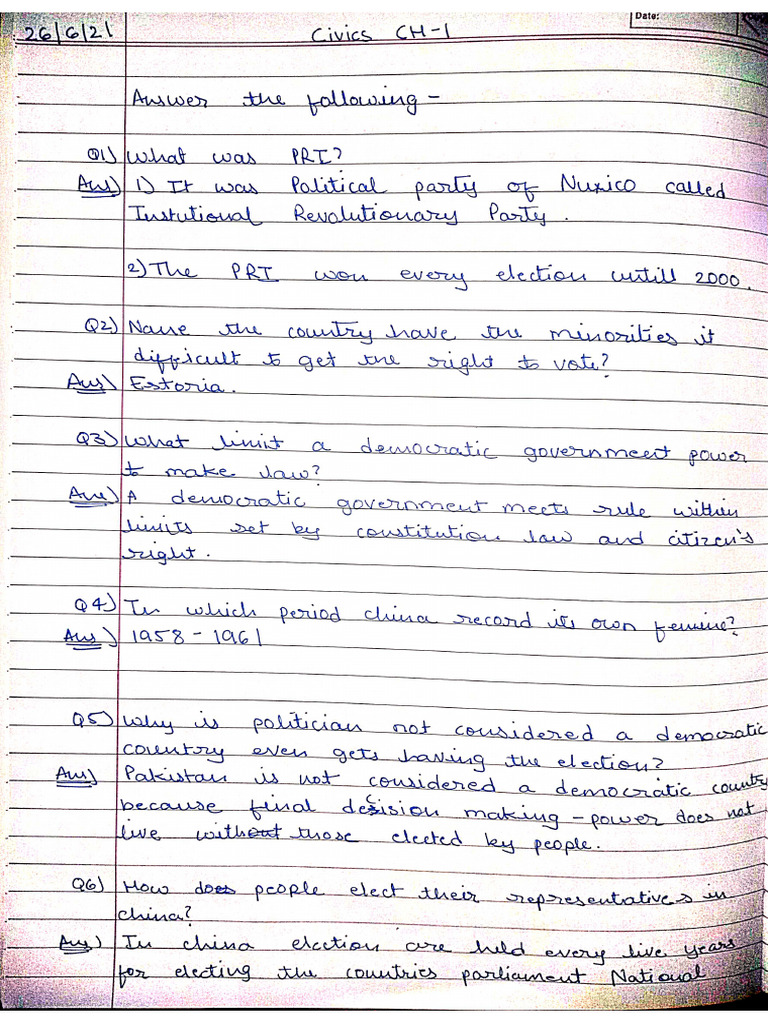 Date:
26/6/21 Civics CH-1
Answer the following -
Q1) What was PRI?
Ans) 1) It was Political party of Nuxico called
Instutional Revolutionary Party.
2) The PRI won every election untill 2000.
Q2) Name the country have the minorities it
difficult to get the right to vote?
Ans) Estoria.
Q3) What limit a democratic government power
to make law?
Ans) A democratic government meets rule within
limits set by constitution law and citizen's
right.
Q4) In which period china record its own femine?
Ans) 1958 - 1961
Q5) Why is politician not considered a democratic
country even gets having the election?
Ans) Pakistan is not considered a democratic country
because final decision making - power does not
live without those elected by people.
Q6) How does people elect their representatives in
china?
Ans) In china election are held every live years
for electing the countries parliament National